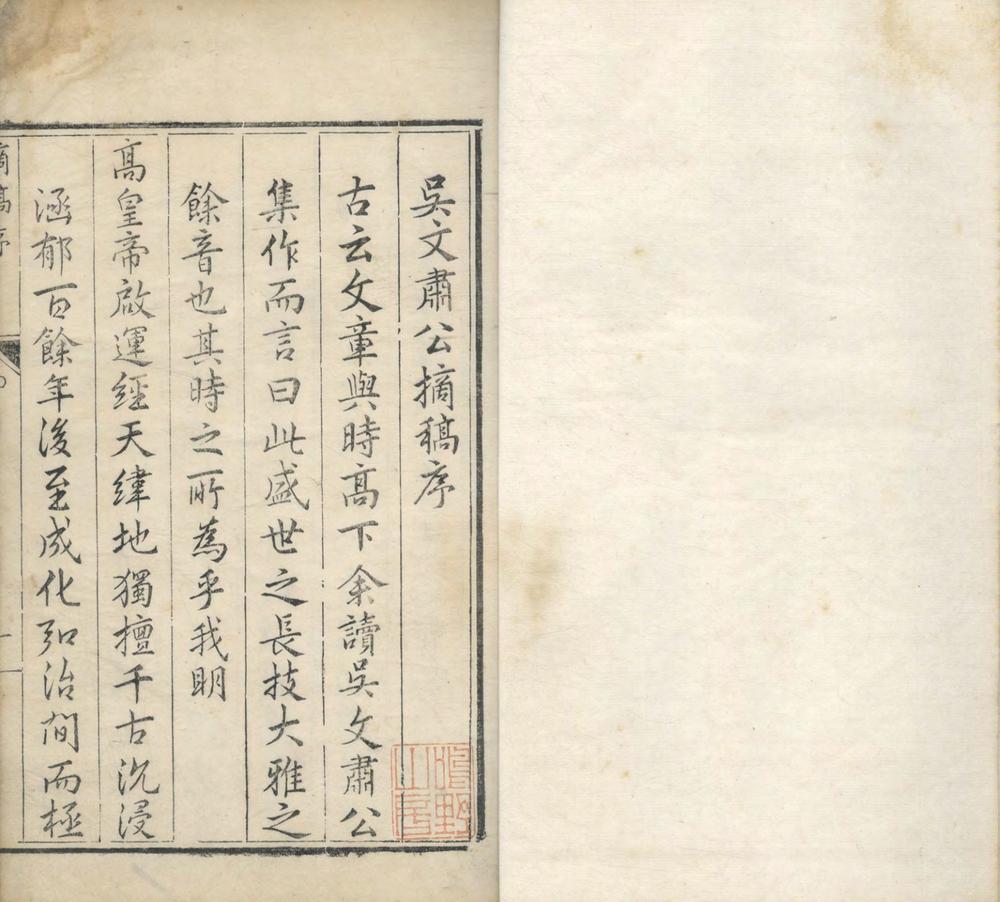 吳文肅公摘稿序
古云文章與時髙下余讀吳文肅公
集作而言曰此盛世之長技大雅之
餘音也其時之所為乎我明
髙皇帝啟運經天緯地獨擅千古沉浸
涵郁百餘年後至成化弘治間而極
摘稿序
一